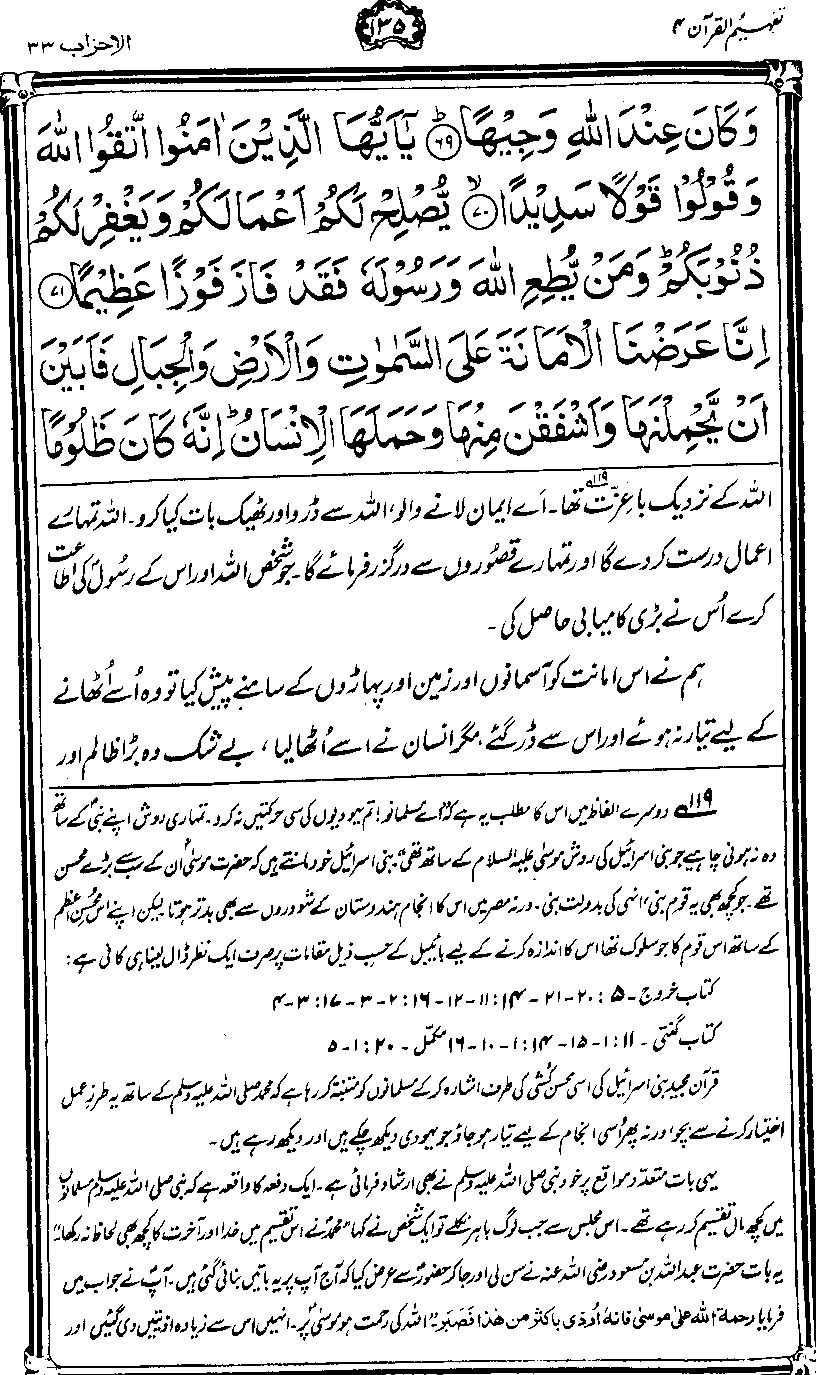 تفہیم القرآن ۴
۱۳۵
الاحزاب ۳۳
وَكَانَ عِنْدَ اللّٰهِ وَجِيْهًا ؕ ﴿۶۹﴾ يٰۤاَيُّهَا الَّذِيْنَ اٰمَنُوا اتَّقُوا اللّٰهَ
وَقُوْلُوْا قَوْلًا سَدِيْدًا ۙ ﴿۷۰﴾ يُّصْلِحْ لَكُمْ اَعْمَالَكُمْ وَيَغْفِرْ لَكُمْ
ذُنُوْبَكُمْ ؕ وَمَنْ يُّطِعِ اللّٰهَ وَرَسُوْلَهٗ فَقَدْ فَازَ فَوْزًا عَظِيْمًا ﴿۷۱﴾
اِنَّا عَرَضْنَا الْاَمَانَةَ عَلَى السَّمٰوٰتِ وَالْاَرْضِ وَالْجِبَالِ فَاَبَيْنَ
اَنْ يَّحْمِلْنَهَا وَاَشْفَقْنَ مِنْهَا وَحَمَلَهَا الْاِنْسَانُ ؕ اِنَّهٗ كَانَ ظَلُوْمًا
اللہ کے نزدیک باعزّت تھا۔۱۱۹ اَے ایمان لانے والو، اللہ سے ڈرو اور ٹھیک بات کیا کرو۔ اللہ تمہارے
اعمال درست کر دے گا اور تمہارے قصُوروں سے درگزر فرمائے گا۔ جو شخص اللہ اور اس کے رسُولؐ کی اطاعت
کرے اُس نے بڑی کامیابی حاصل کی۔
ہم نے اس امانت کو آسمانوں اور زمین اور پہاڑوں کے سامنے پیش کیا تو وہ اُسے اُٹھانے
کے لیے تیار نہ ہوئے اور اس سے ڈر گئے، مگر انسان نے اسے اُٹھا لیا، بے شک وہ بڑا ظالم اور
۱۱۹ دوسرے الفاظ میں اس کا مطلب یہ ہے کہ ”اے مسلمانو! تم یہودیوں کی سی حرکتیں نہ کرو۔ تمہاری روش اپنے نبیؐ کے ساتھ
وہ نہ ہونی چاہیے جو بنی اسرائیل کی روش موسیٰ علیہ السلام کے ساتھ تھی“۔ بنی اسرائیل خود مانتے ہیں کہ حضرت موسیٰؑ ان کے سب سے بڑے محسن
تھے۔ جو کچھ بھی یہ قوم بنی، انہی کی بدولت بنی، ورنہ مصر میں اس کا انجام ہندوستان کے شودروں سے بھی بدتر ہوتا۔ لیکن اپنے اس محسنِ اعظم
کے ساتھ اس قوم کا جو سلوک تھا اس کا اندازہ کرنے کے لیے بائیبل کے حسب ذیل مقامات پر صرف ایک نظر ڈال لینا ہی کافی ہے:
کتاب خروج۔ ۵: ۲۰-۲۱-۱۴: ۱۱-۱۲-۱۶: ۲-۳-۱۷: ۳-۴
کتاب گنتی۔ ۱۱: ۱-۱۵-۱۴: ۱-۱۰-۱۶ مکمّل۔ ۲۰: ۱-۵
قرآن مجید بنی اسرائیل کی اسی محسن کُشی کی طرف اشارہ کرکے مسلمانوں کو متنبّہ کر رہا ہے کہ محمد صلی اللہ علیہ وسلم کے ساتھ یہ طرزِ عمل
اختیار کرنے سے بچو، ورنہ پھر اُسی انجام کے لیے تیار ہو جاؤ جو یہودی دیکھ چکے ہیں اور دیکھ رہے ہیں۔
یہی بات متعدّد مواقع پر خود نبی صلی اللہ علیہ وسلم نے بھی ارشاد فرمائی ہے۔ ایک دفعہ کا واقعہ ہے کہ نبی صلی اللہ علیہ وسلم مسلمانوں
میں کچھ مال تقسیم کر رہے تھے۔ اس مجلس سے جب لوگ باہر نکلے تو ایک شخص نے کہا ”محمدؐ نے اس تقسیم میں خدا اور آخرت کا کچھ بھی لحاظ نہ رکھا“۔
یہ بات حضرت عبداللہ بن مسعود رضی اللہ عنہ نے سن لی اور جا کر حضورؐ سے عرض کیا کہ آج آپ پر یہ باتیں بنائی گئی ہیں۔ آپؐ نے جواب میں
فرمایا رحمة اللہ علیٰ موسیٰ فانہٗ اُوذی باکثر من ھٰذا فصَبَر۔ ”اللہ کی رحمت ہو موسیٰؑ پر۔ انہیں اس سے زیادہ اذیتیں دی گئیں اور